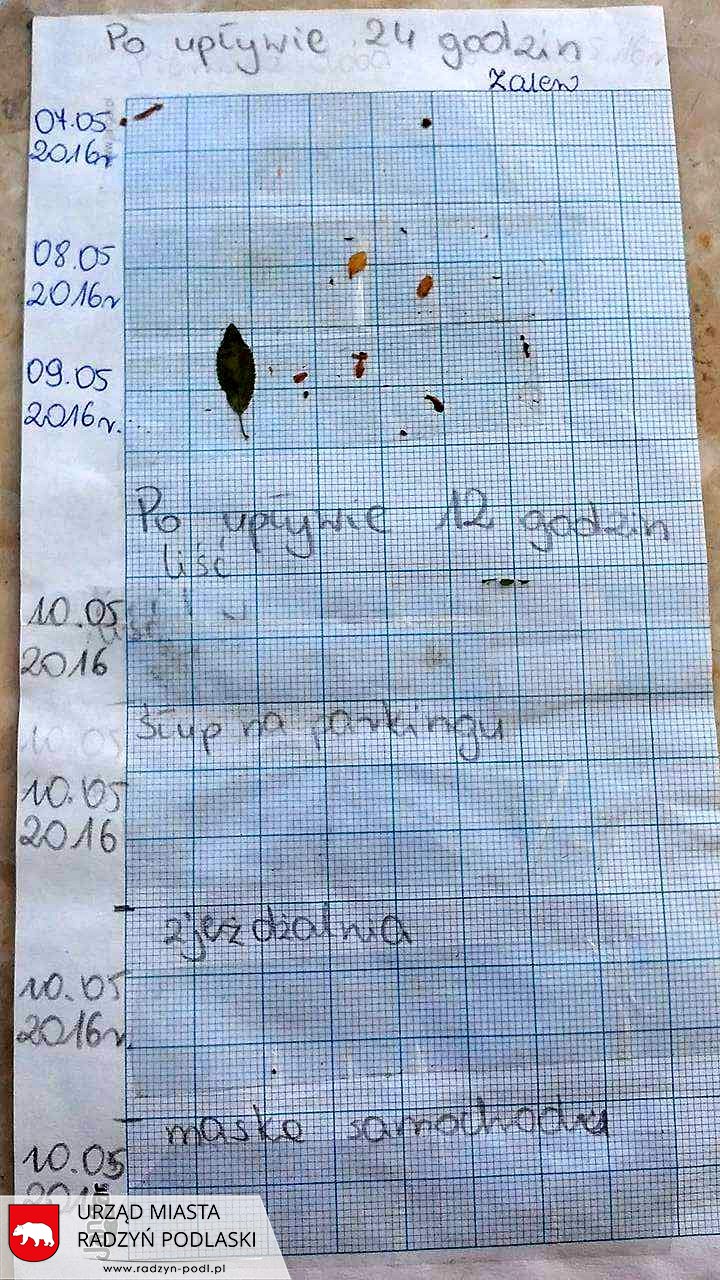 Po upływie 24 godzin
Zalew
07.05
2016r
08.05
2016r
09.05
2016r.
Po upływie 12 godzin
liść
10.05
2016
Słup na parkingu
10.05
10.05
2016
zjeżdżalnia
10.05
2016r.
maska samochodu
10.05
URZĄD MIASTA
RADZYŃ PODLASKI
www.radzyn-podl.pl